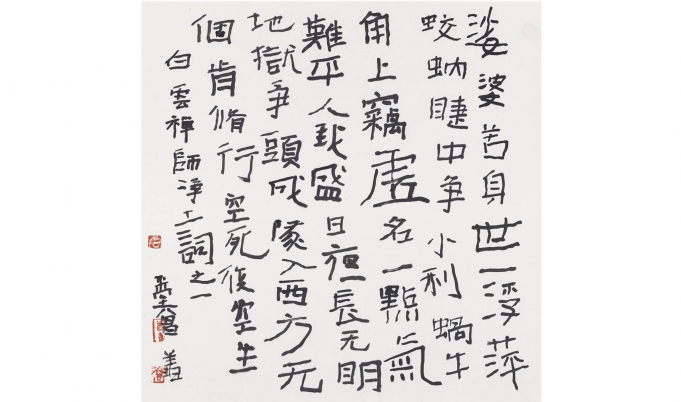 娑婆苦身世一浮萍
蚊蚋睫中争小利蝸牛
角上竊虛名一點氣
難平人我盛日夜長无明
地獄争頭成隊入西方无
個肯脩行空死復空生
白雲禪師淨土詞之一